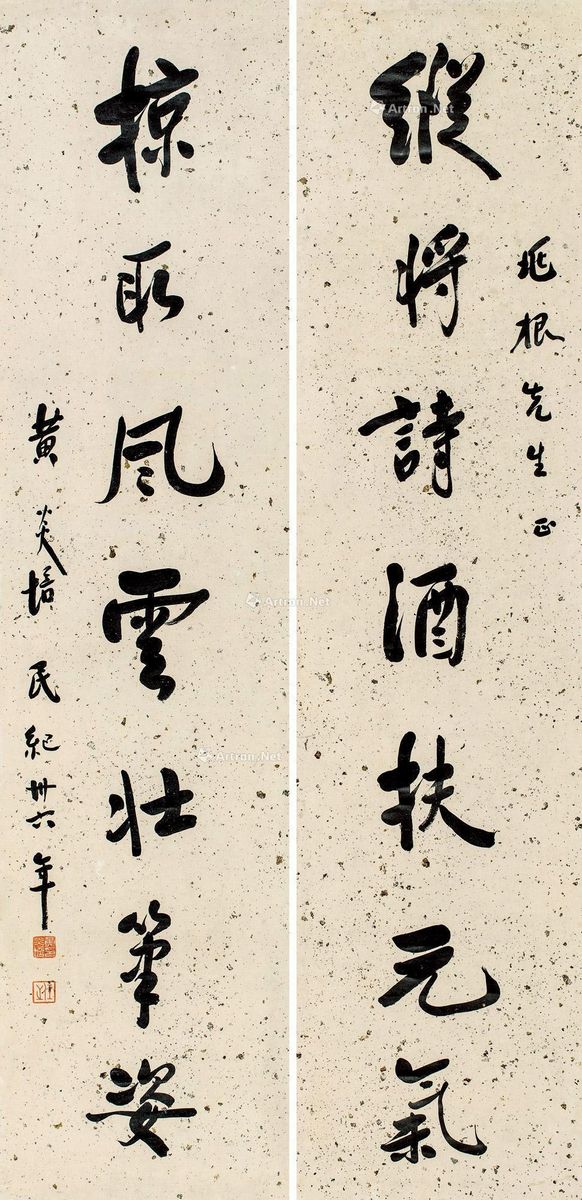 兆根先生正
縱將詩酒扶元氣
掠取風雲壯筆姿
黃炎培民紀卅六年
Artron.Net
Artron.Net
Artron.Net